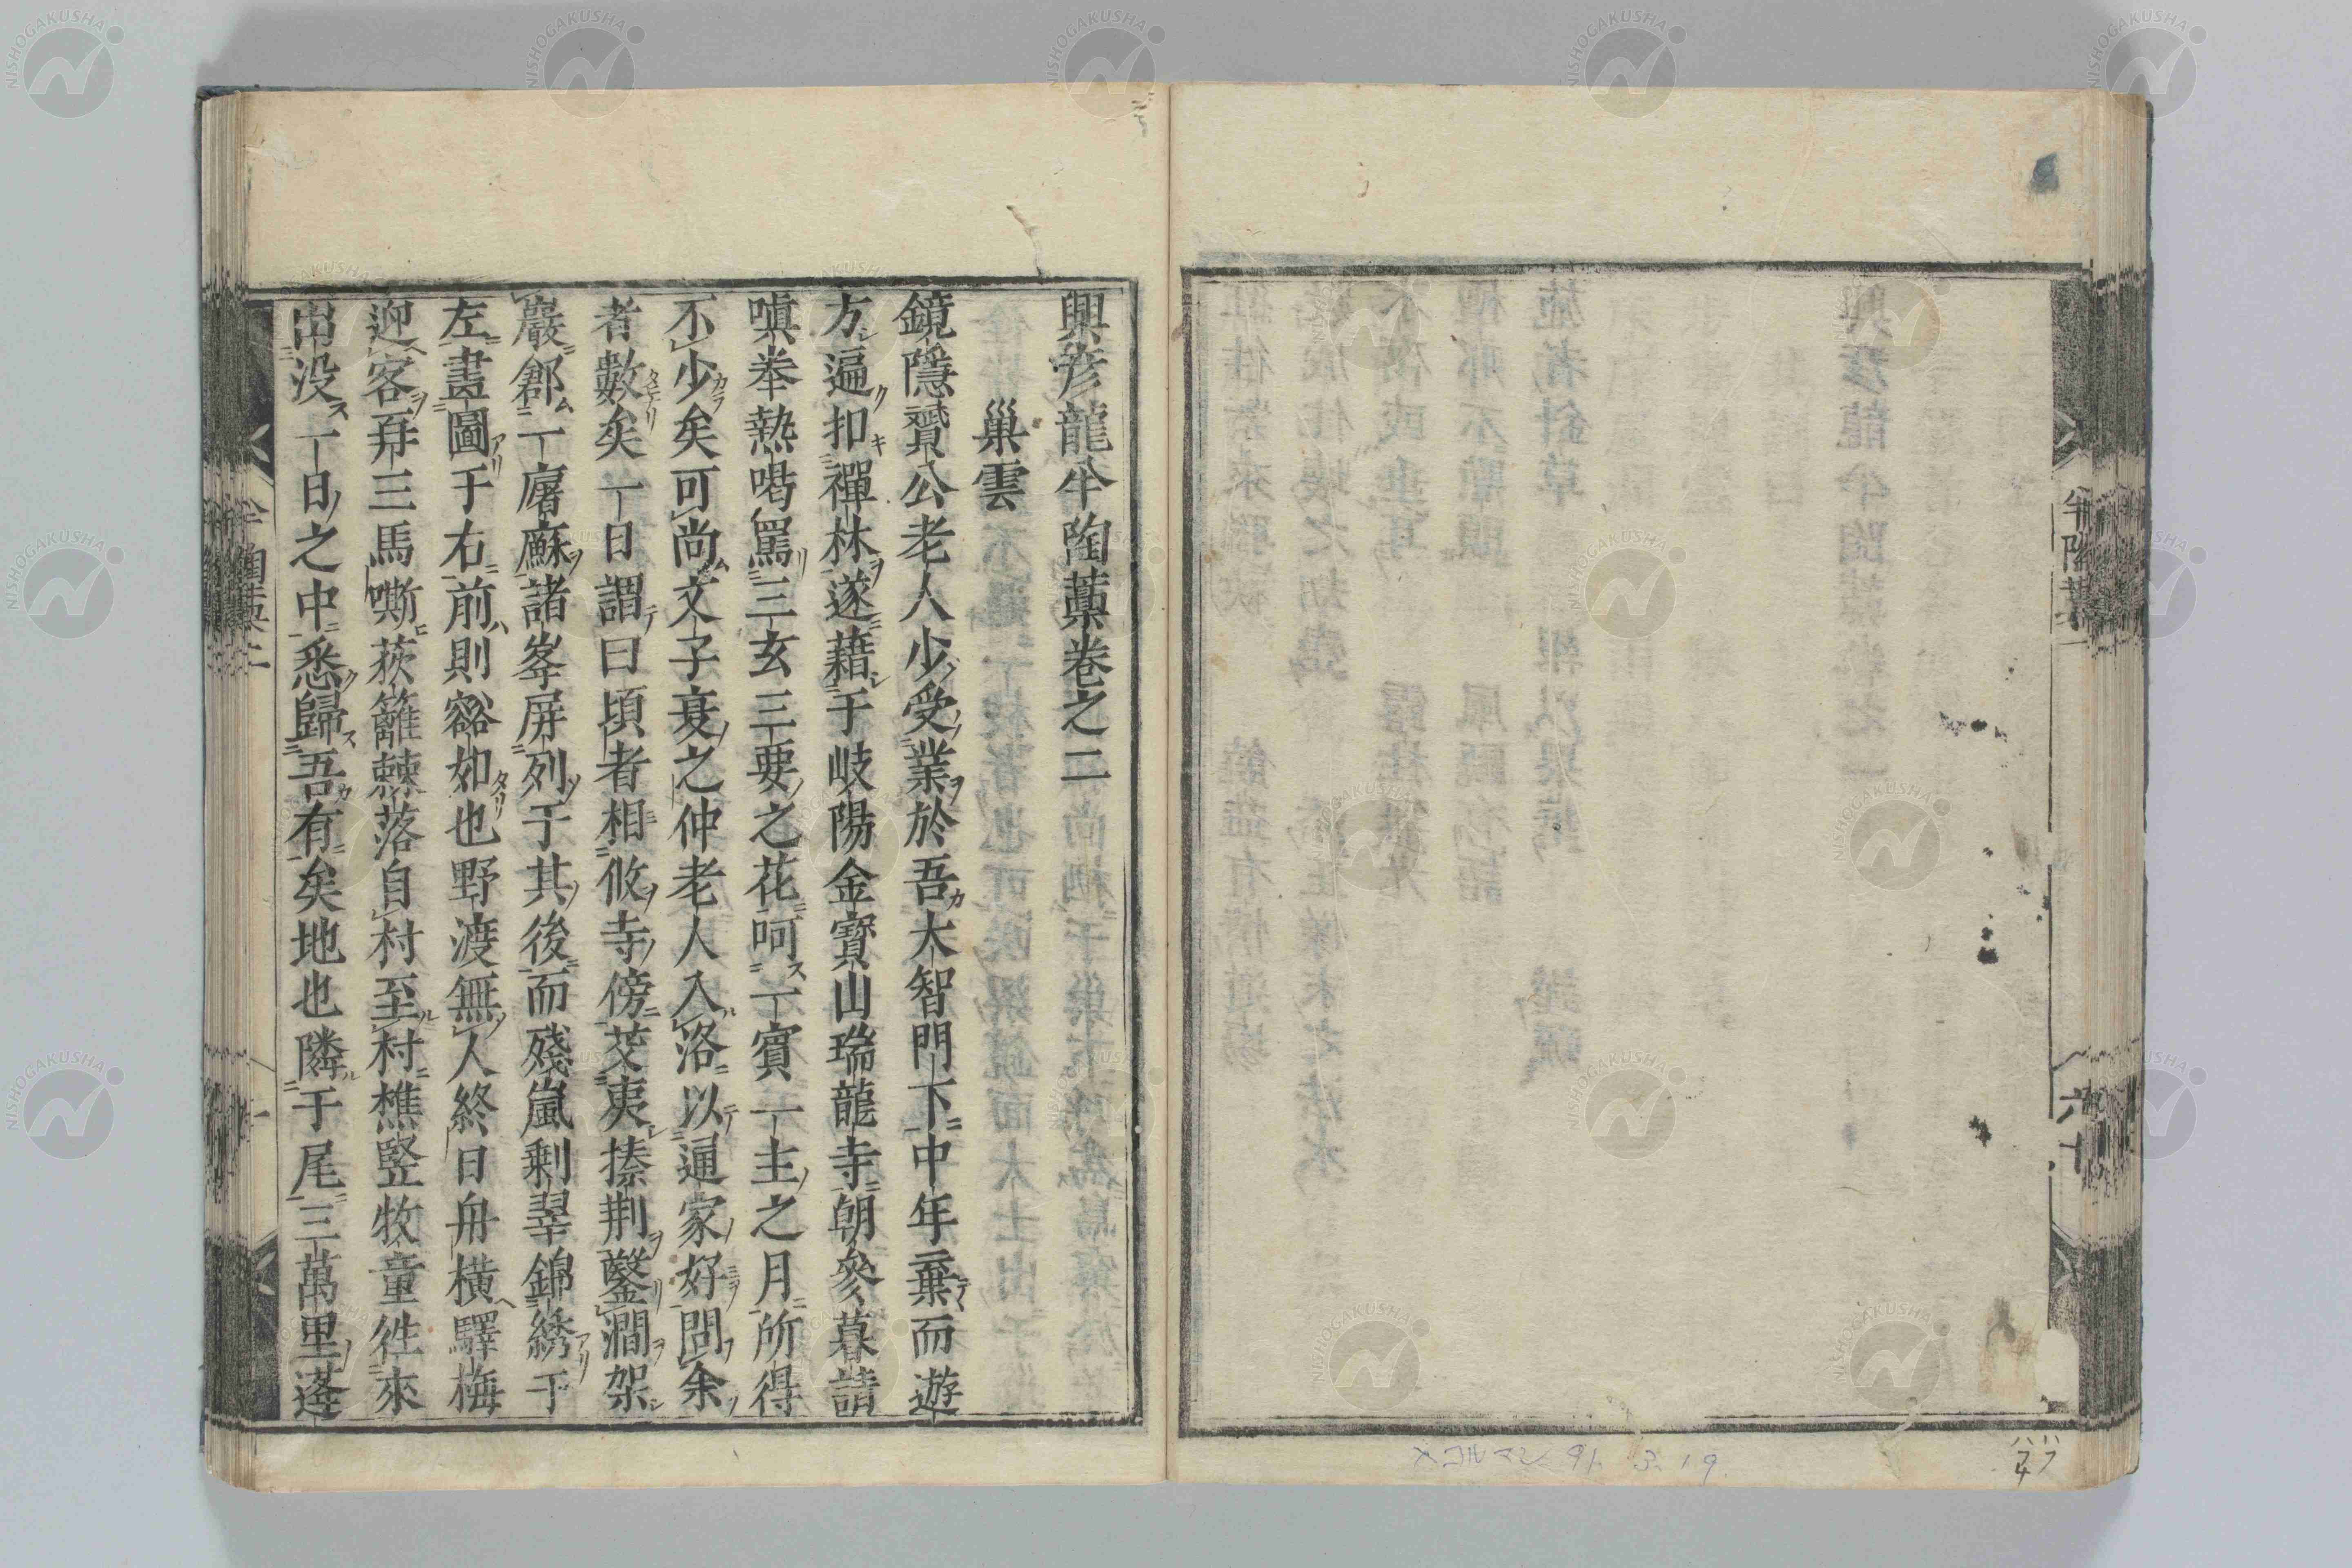 興彦龍半陶藁巻之二
巣雲
鏡隱贇公老人少受業於吾大智門下中年棄而遊
方遍扣禪林遂藉于岐陽金寶山瑞龍寺朝參暮請
嗔拳熱喝罵三玄三要之花呵一賓一主之月所得
不少矣可尚文子衰之仲老人入洛以通家好問余
者數矣一日謂曰頃者相攸寺傍芟夷榛荆鑿澗架
巖剏一廜㢝諸峯屏列于其後而殘嵐剰翠錦綉于
左畫圖于右前則谿如也野渡無人終日舟横驛梅
迎客弄三馬嘶荻籬棘落自村至村樵竪牧童徃來
出没一日之中悉歸吾有矣地也隣于尾三萬里蓬
半陶藁二
一
半陶藁一
六十
91.3.19
NISHOGAKUSHA